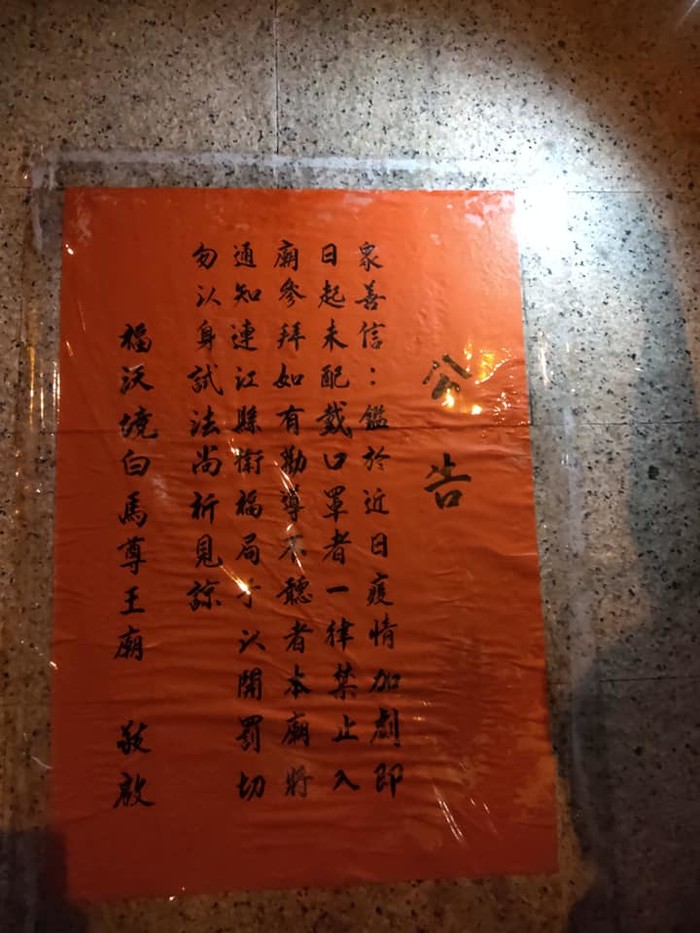 公告
眾善信：鑑於近日疫情加劇即
日起未配戴口罩者一律禁止入
廟參拜如有勸導不聽者本廟將
通知連江縣衛福局予以開罰切
勿以身試法尚祈見諒
福沃境白馬尊王廟 敬啟